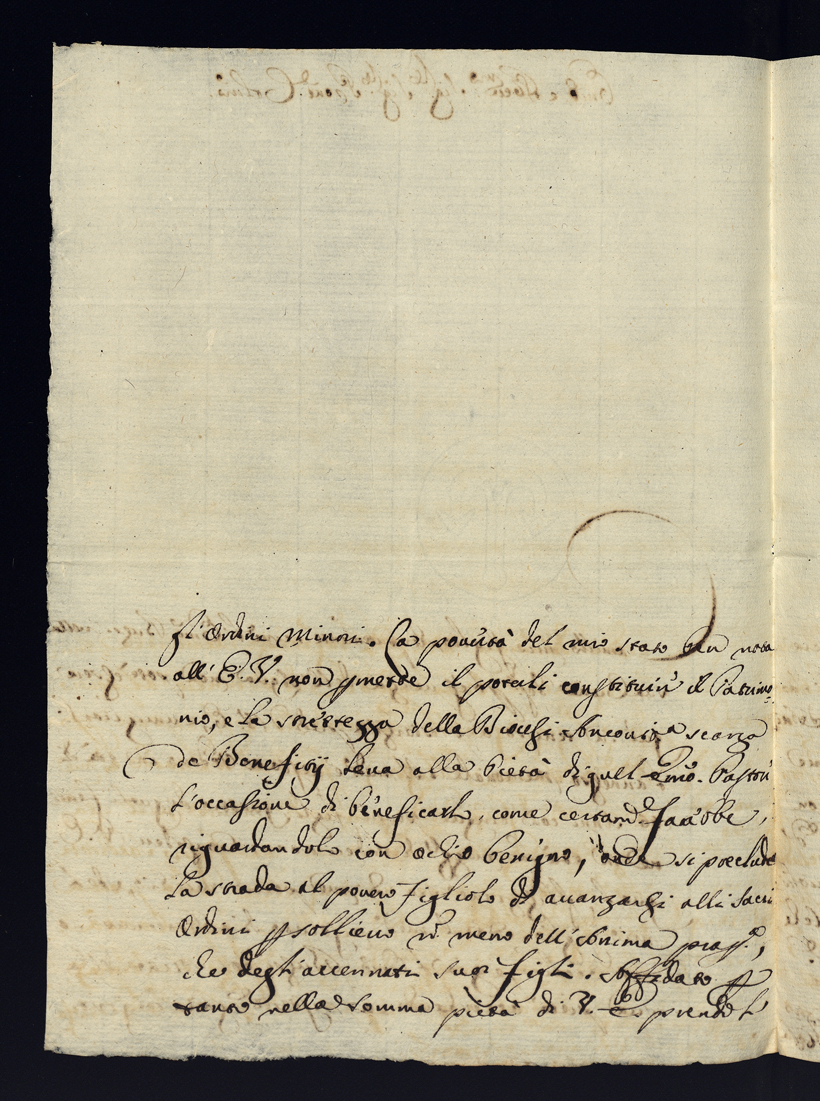 gl'Ordini Minori. La povertà del mio stato ben nota
all'E. V. non permette il poterli constituir il Patrimo¬
nio, e la strettezza della Diocesi Anconit.a scarza
de Benefitij leva alla Pietà di quel Em̃o. Pastor
l'occasione di beneficarlo, come certam.e farebbe,
riguardandolo con ochio benigno, onde si preclude
la strada al povero figliolo di avanzarsi alli Sacri
Ordini p sollievo n meno dell'Anima prop.a,
che degl'accennati suoi figli. Affidato p
tanto nella somma pietà di V. E. prendo l'